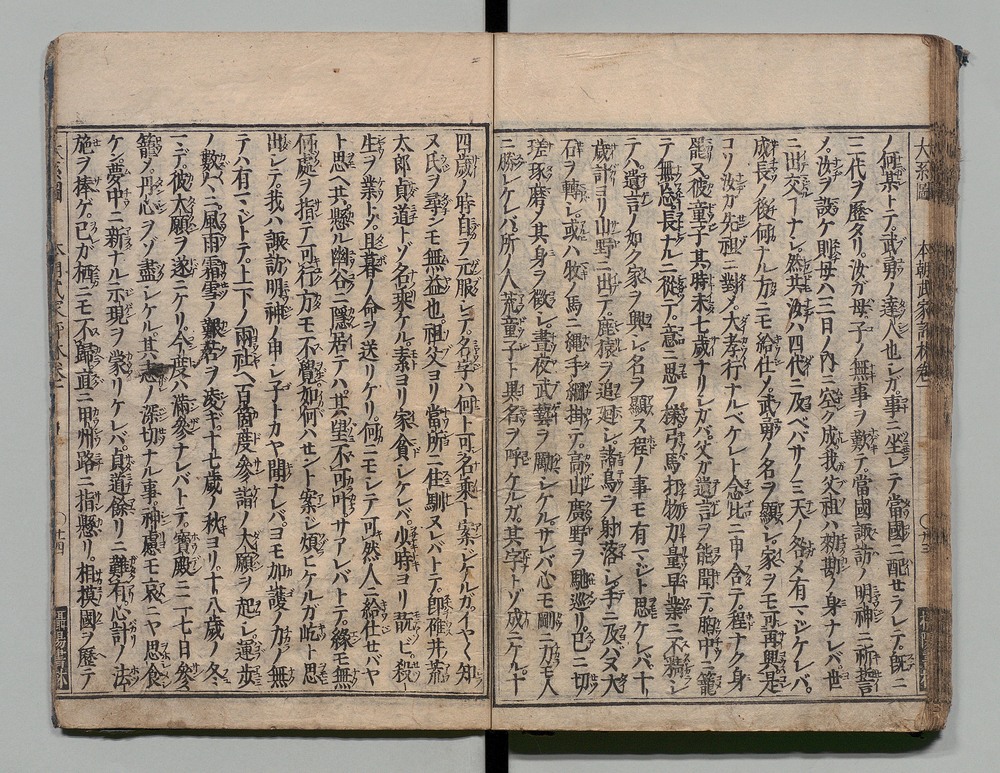 大系圖 本朝武家評林 卷一 ○ 廿三
ノ何某トテ。武勇ノ達人也シガ。事ニ坐シテ當國ニ配セラレテ。既ニ
三代ヲ歷タリ。汝ガ母子ノ無事ヲ歎テ。當國諏訪ノ明神ニ祈誓
ノ。汝ヲ設ケ則母ハ三日ノ內ニ空ク成我父祖ハ勅勘ノ身ナレバ。世
ニ出交コナシ。然共汝ハ四代ニ及ベバサノミ天ノ咎メ有マジケレバ。
成長ノ後何ナル方ニモ給仕メ。武勇ノ名ヲ顯シ。家ヲモ再興是
コソ汝ガ先祖ニ對メ。大孝行ナルベケレト念比ニ申含テ。程ナク身
罷又彼童子其時未七歲ナリシガバ。父ガ遺言ヲ能聞テ。胸中ニ籠
テ無忘長ナルニ從テ。意ニ思フ樣弓馬打物力量早業ニ不勝シ
テハ。遺言ノ如ク家ヲ興シ。名ヲ顯ス程ノ事モ有マジト思ケレバ。十
歲計ヨリ山野ニ出テ。鹿猿ヲ追廻シ。諸鳥ヲ射落シ。手ニ及バヌ大
石ヲ轉シ。或ハ牧ノ馬ニ繩手綱掛テ。高山廣野ヲ馳巡リ。已ニ切
瑳琢磨メ其身ヲ徵シ。晝夜武藝ヲ勵シケル。サレバ心モ剛ニ力モ人
ニ勝シケレバ。所ノ人荒童子ト異名ヲ呼ケルガ。其字トゾ成ニケル。十
四歲ノ時自ヲ元服シテ。名字ハ何ト可名乘ト案ジケルガ。イヤ〱知
ヌ氏ヲ尋シモ無益也。祖父ヨリ當所ニ住馴ヌレバトテ。卽碓井荒
太郎貞道トゾ名乘ケル。素ヨリ家貪シケレバ。少時ヨリ翫ビシ殺
生ヲ業トメ。且暮ノ命ヲ送リケリ。何ニモシテ可然人ニ給仕セバヤ
ト思へ共。懸ル幽谷ニ隱居テハ。其望不可叶サアレバトテ。緣モ無
何處ヲ指テ可行方モ不覺。如何ハセント案ジ煩ヒケルガ屹ト思
出シテ。我ハ諏訪明神ノ申シ子トカヤ聞ナレバ。ヨモ加護ノ力ノ無
テハ有マジトテ。上下ノ兩社へ百箇度參詣ノ大願ヲ起シ。運步
ノ數〱ニ。風雨霜雪ノ艱苦ヲ凌ギ。十七歲ノ秋ヨリ。十八歲ノ冬
マデ。彼大願ヲ遂ニケリ。今度ハ滿參ナレバトテ。寶殿ニ一七日參
籠メ。丹心ヲゾ盡シケル。其志ノ深切ナル事。神慮モ哀ニヤ思食
ケン。夢中ニ新ナル示現ヲ蒙リケレバ。貞道餘リニ難有。心計ノ法
施ヲ捧ゲ。已カ栖ニモ不歸直ニ甲州路ニ指懸リ。相摸國ヲ歷テ
本朝武家評林 卷一 ○ 廿四